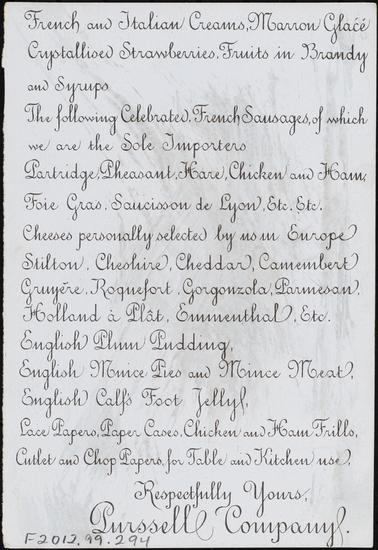 French and Italian Creams, Marron Glaćé
Crystallised Strawberries, Fruits in Brandy
and Syrups
The following Celebrated, French Sausages, of which
we are the Sole Importers
Partridge, Pheasant, Hare, Chicken and Ham,
Foie Gras, Saucisson de Lyon, Etc. Etc.
Cheeses personally selected by us in Europe
Stilton, Cheshire, Cheddar, Camembert
Gruyére, Roquefort, Gorgonzola, Parmesan,
Holland à Plât, Emmenthal, Etc.
English Plum Pudding,
English Mnice Pies and Mince Meat,
English Calf's Foot Jelly,
Lace Papers, Paper Cases, Chicken and Ham Frills,
Cutlet and Chop Papers, for Table and Kitchen use,
Respectfully Yours,
Purssell Company.
F2012.99.294